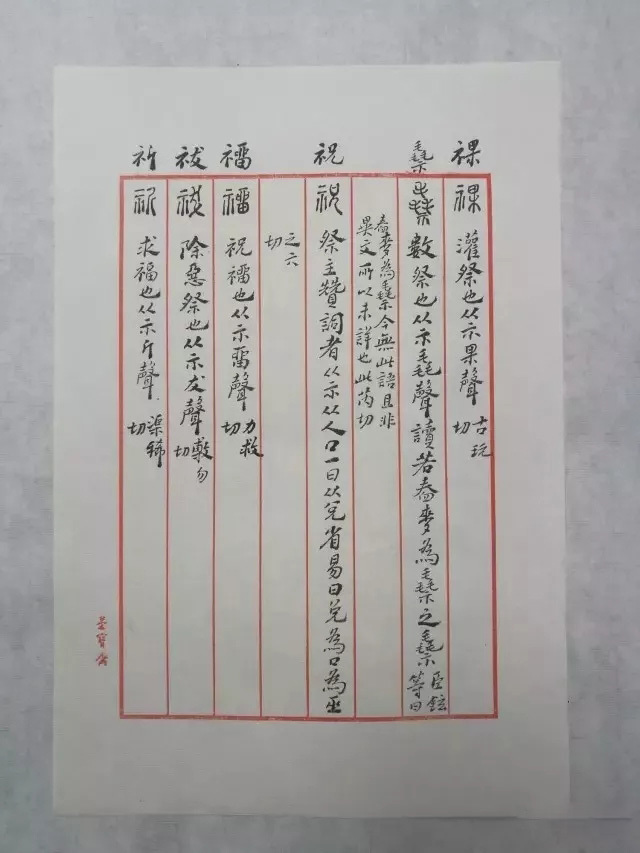 祼
祼 灌祭也从示果聲 古玩切
數祭也从示毳聲讀若舂麥為之 臣鉉等曰
舂麥為今無此語且非異文所以未詳也此芮切
祝
祝 祭主贊詞者从示从人口一曰从兌省易曰兌為口為巫
之六切
祝也从示畱聲 力救切
祓
祓 除惡祭也从示犮聲 敷勿切
祈
祈 求福也从示斤聲 渠稀切